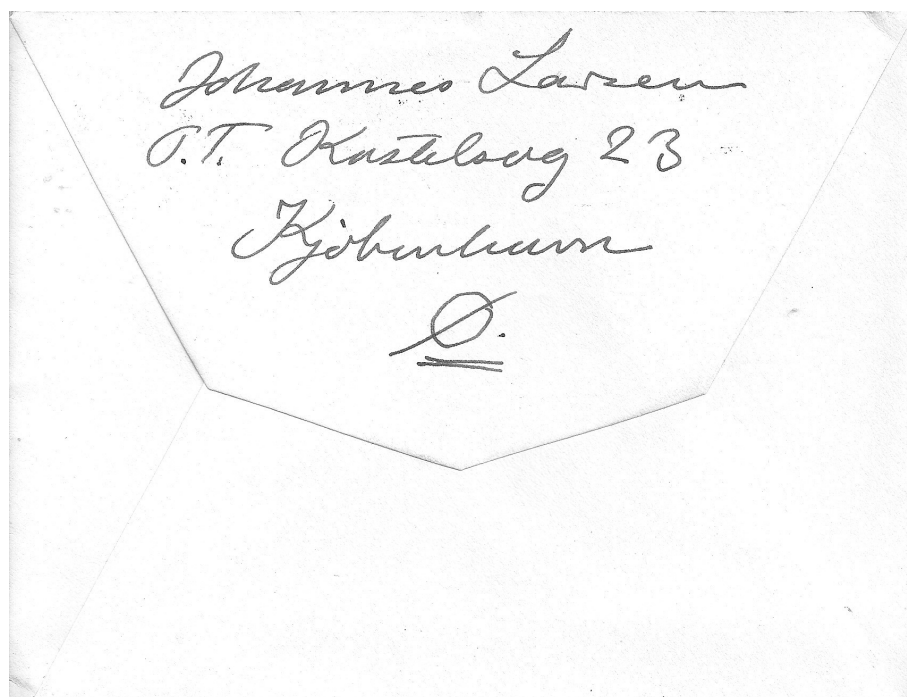 Johannes Larsen
P.T. Kastelsvej 23
Kjøbenhavn
Ø.